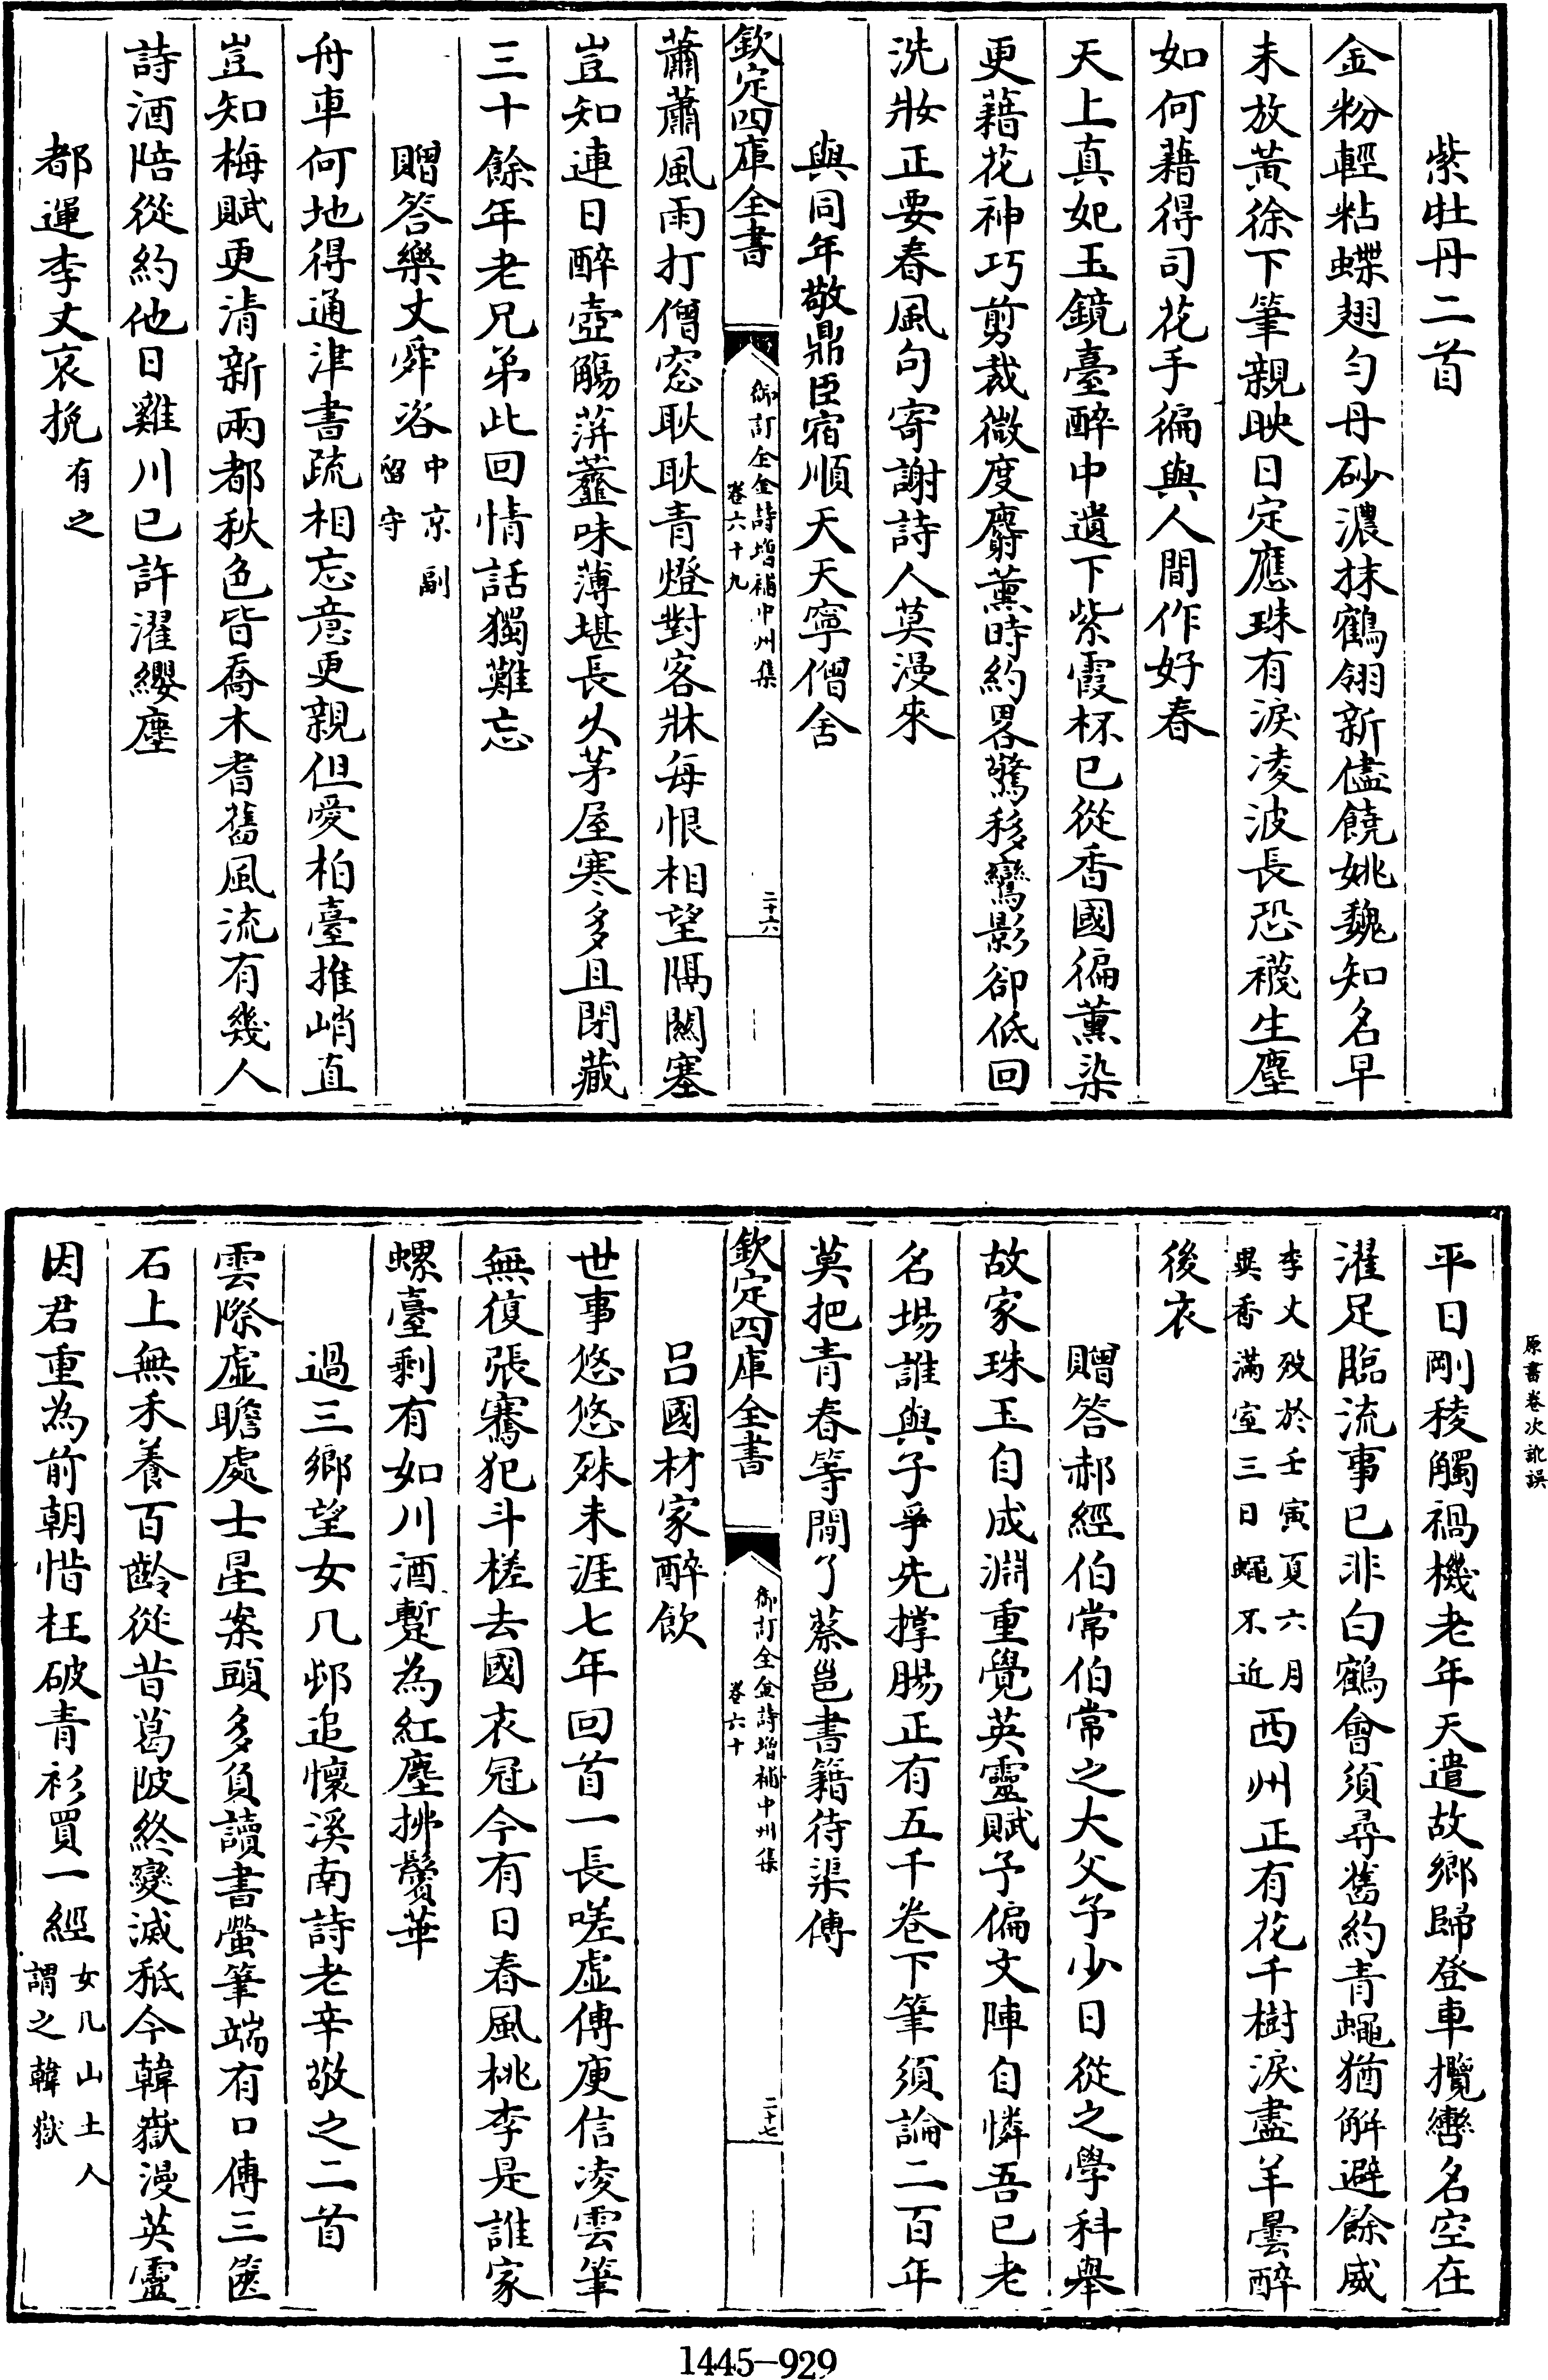 紫牡丹二首
金粉輕粘蝶翅勻丹砂濃抹鶴翎新儘饒姚魏知名早
未放黃徐下筆親映日定應珠有淚凌波長恐襪生塵
如何藉得司花手徧與人間作好春
天上真妃玉鏡臺醉中遺下紫霞杯已從香國徧薰染
更藉花神巧剪裁微度麝薰時約畧驚移鸞影卻低回
洗妝正要春風句寄謝詩人莫漫來
與同年敬鼎臣宿順天天寧僧舍
欽定四庫全書
御訂全金詩增補中州集
卷六十九
二十六
蕭蕭風雨打僧窓耿耿青燈對客牀每恨相望隔關塞
豈知連日醉壺觴蓱虀味薄堪長久茅屋寒多且閉藏
三十餘年老兄弟此回情話獨難忘
贈答樂丈舜咨中京副
留守
舟車何地得通津書疏相忘意更親但愛柏臺推峭直
豈知梅賦更清新兩都秋色皆喬木耆舊風流有幾人
詩酒陪從約他日雞川已許濯纓塵
都運李丈哀挽有之
平日剛稜觸禍機老年天遣故鄉歸登車攬轡名空在
濯足臨流事已非白鶴會須尋舊約青蠅猶解避餘威
李丈歿於壬寅夏六月
異香滿室三日蠅不近西州正有花千樹淚盡羊曇醉
後衣
贈答郝經伯常伯常之大父予少日從之學科舉
故家珠玉自成淵重覺英靈賦予偏文陣自憐吾已老
名場誰與子爭先撑腸正有五千卷下筆須論二百年
莫把青春等閒了蔡邕書籍待渠傳
欽定四庫全書
御訂全金詩增補中州集
卷六十
二十七
呂國材家醉飲
世事悠悠殊未涯七年回首一長嗟虛傳庾信凌雲筆
無復張騫犯斗槎去國衣冠今有日春風桃李是誰家
螺臺剩有如川酒蹔為紅塵拂鬢華
過三鄉望女几邨追懷溪南詩老辛敬之二首
雲際虛瞻處士星案頭多負讀書螢筆端有口傳三篋
石上無禾養百齡從昔葛陂終變滅秪今韓嶽漫英靈
因君重為前朝惜枉破青衫買一經女几山土人
謂之韓嶽
原書卷次訛誤
1445-929